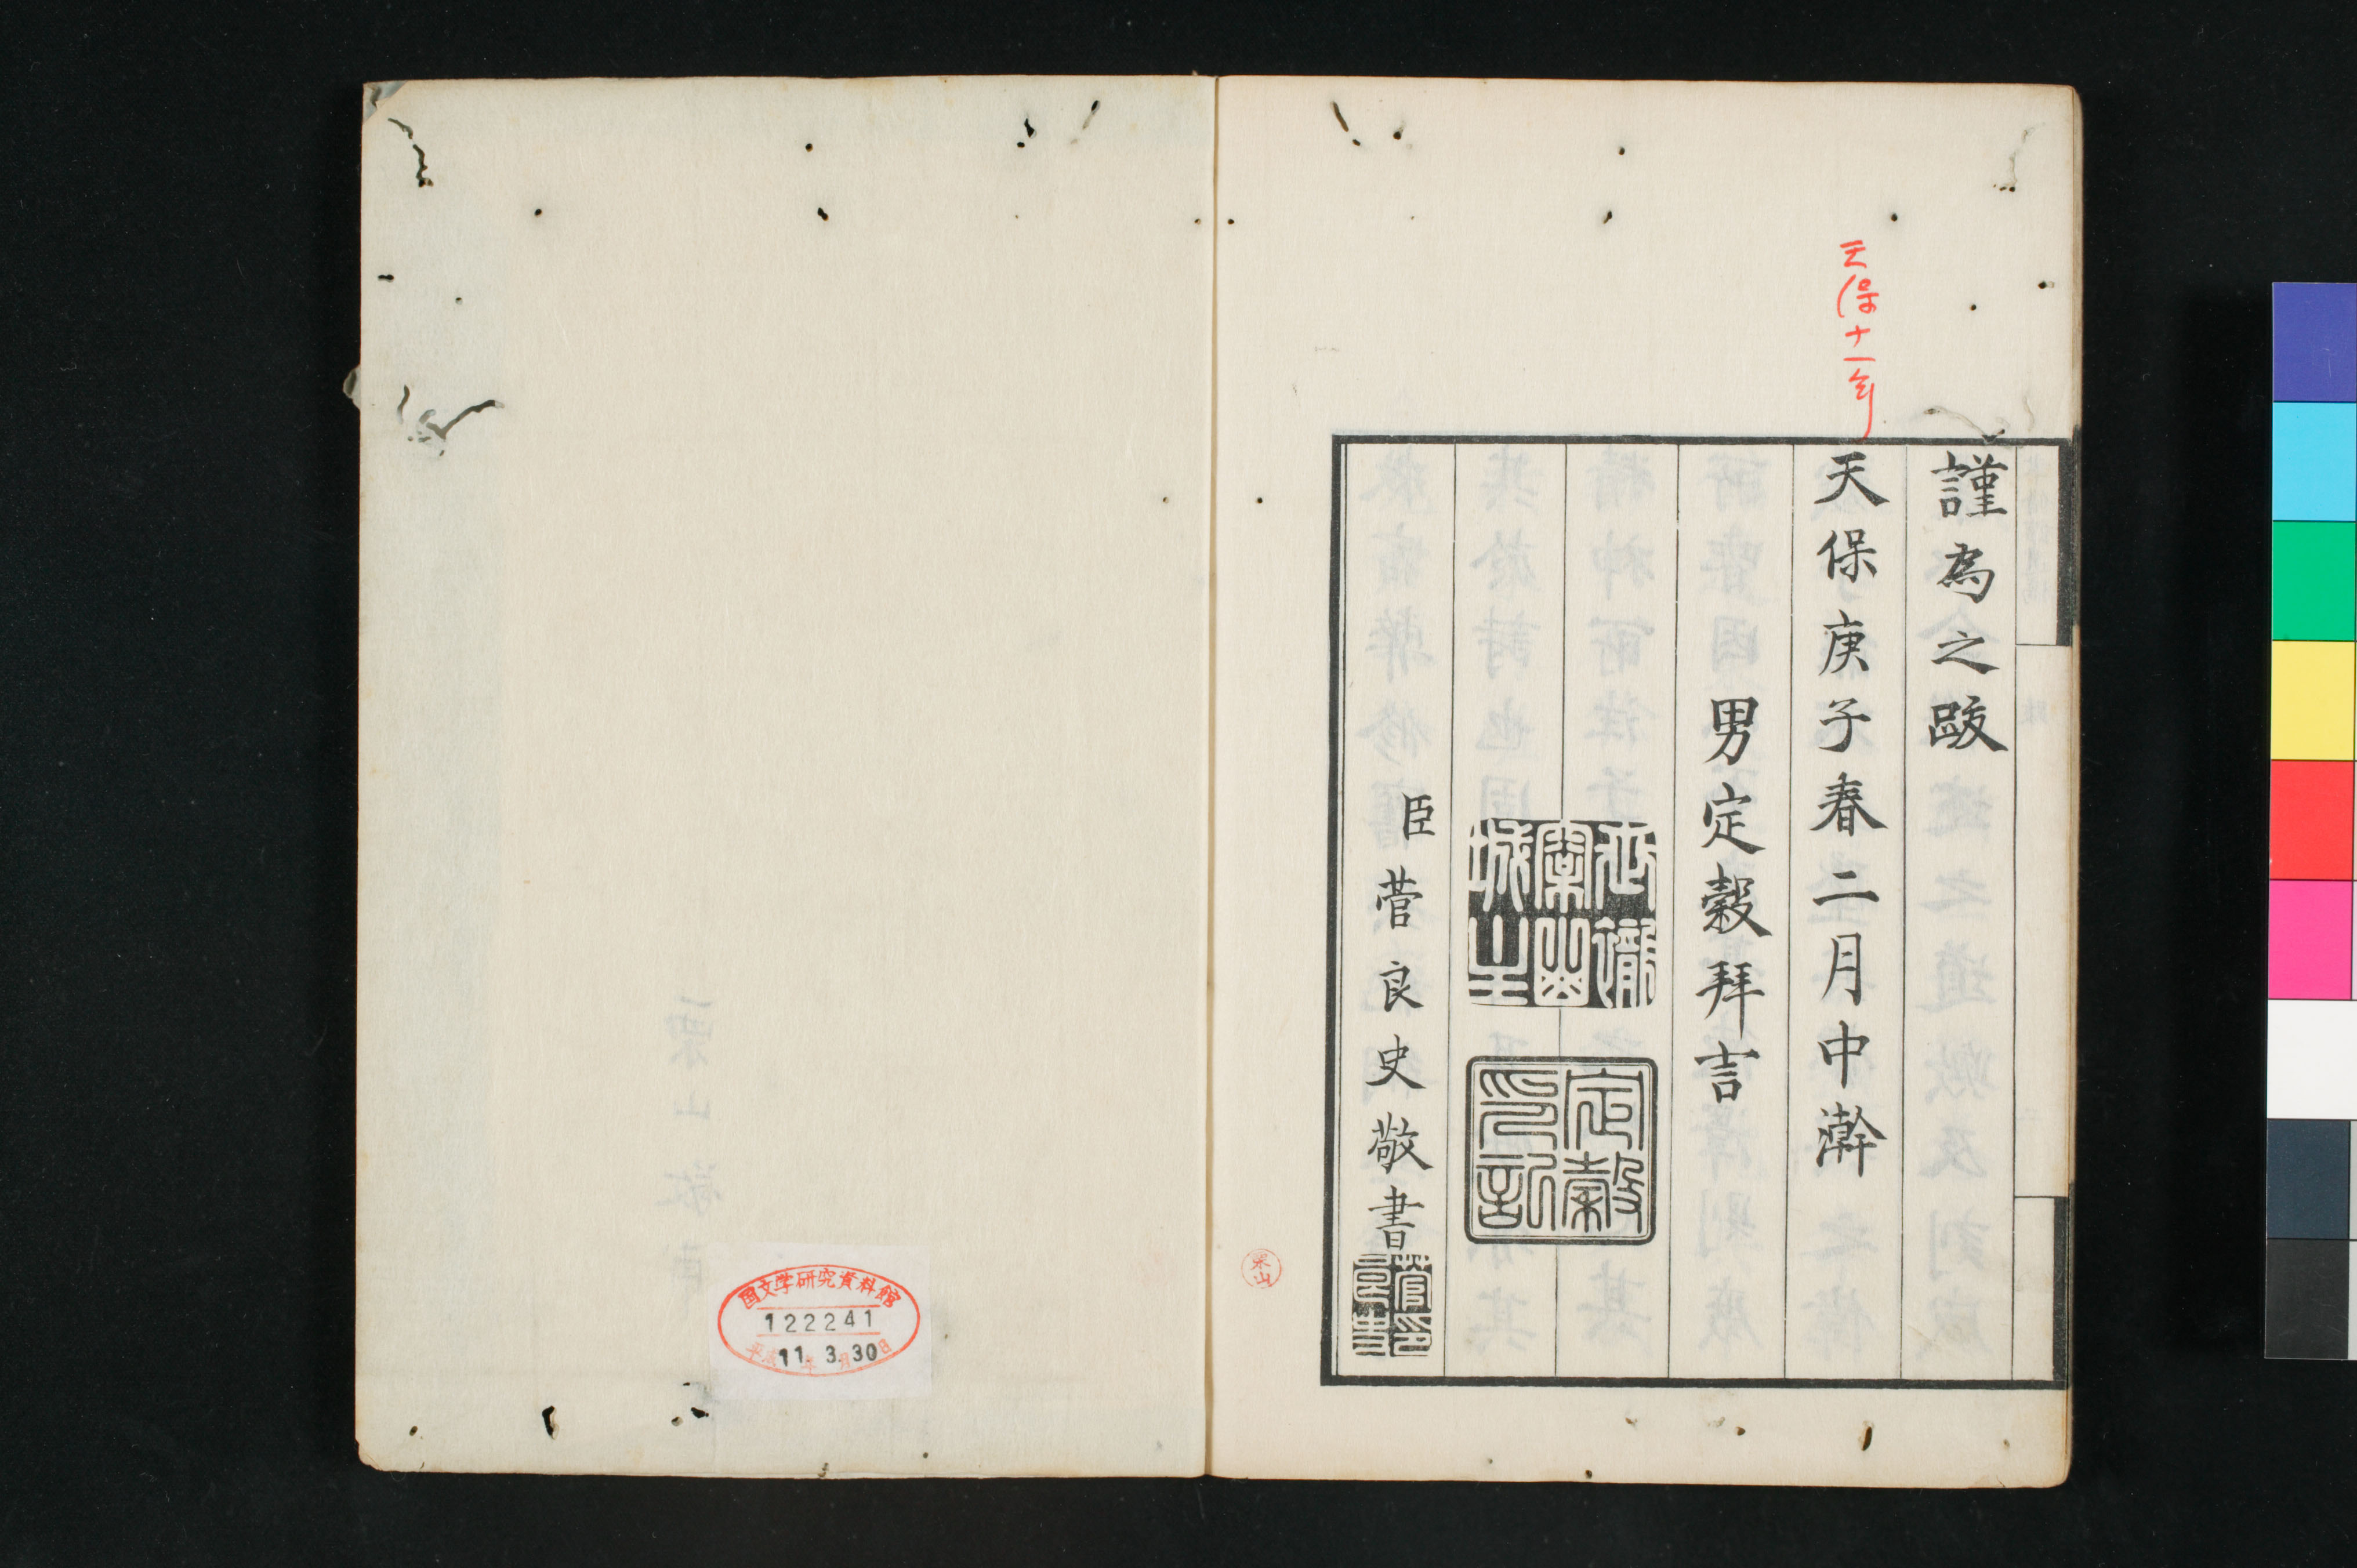 天保十一年
謹為之跋
天保庚子春二月中澣
男定穀拜言
定穀印記
臣菅良史敬書
栗山
国文学研究資料館
122241
平成11年3月30日